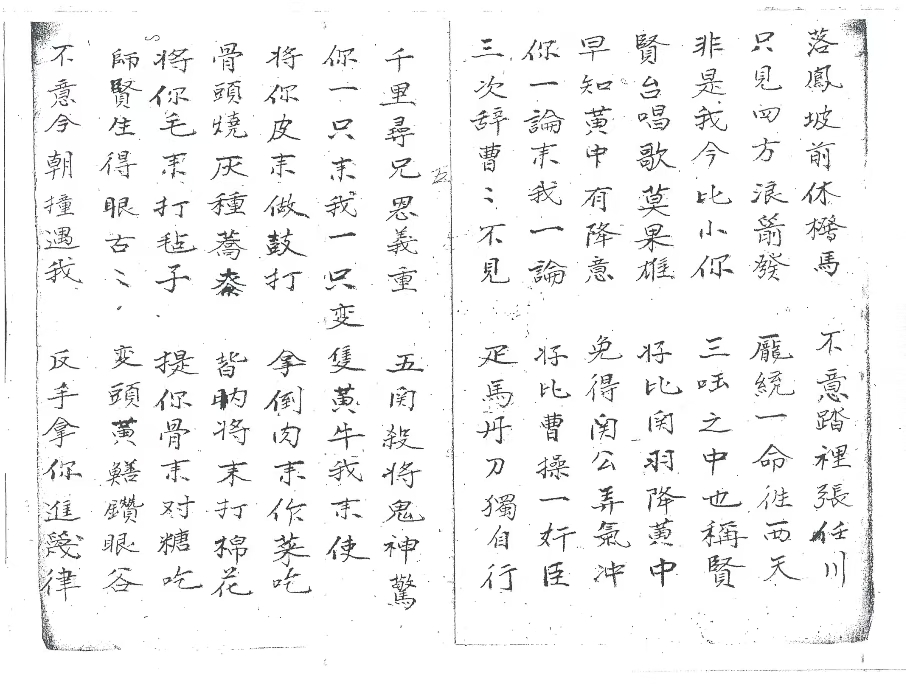 落鳳坡前休橃馬　不意踏裡張任川
只見四方浪箭發　龐統一命徃西天
非是我今比小你　三咓之中也稱賢
賢台唱歌莫果雄　好比関羽降黄中
早知黄中有降意　免得関公弄氣冲
你一論来我一論　好比曹操一奸臣
三次辞曹〻不見　疋馬丹刀獨自行
千里尋兄恩義重　五関殺将鬼神驚
你一只来我一只　变隻黄牛我来使
将你皮来做鼓打　拿倒肉来作菜吃
骨頭燒灰種蕎　皆昫将来打棉花
将你毛来打毡子　提你骨来对糖吃
師賢生得眼古〻　变頭黄鱔鑽眼谷
不意今朝撞遇我　反手拿你進律